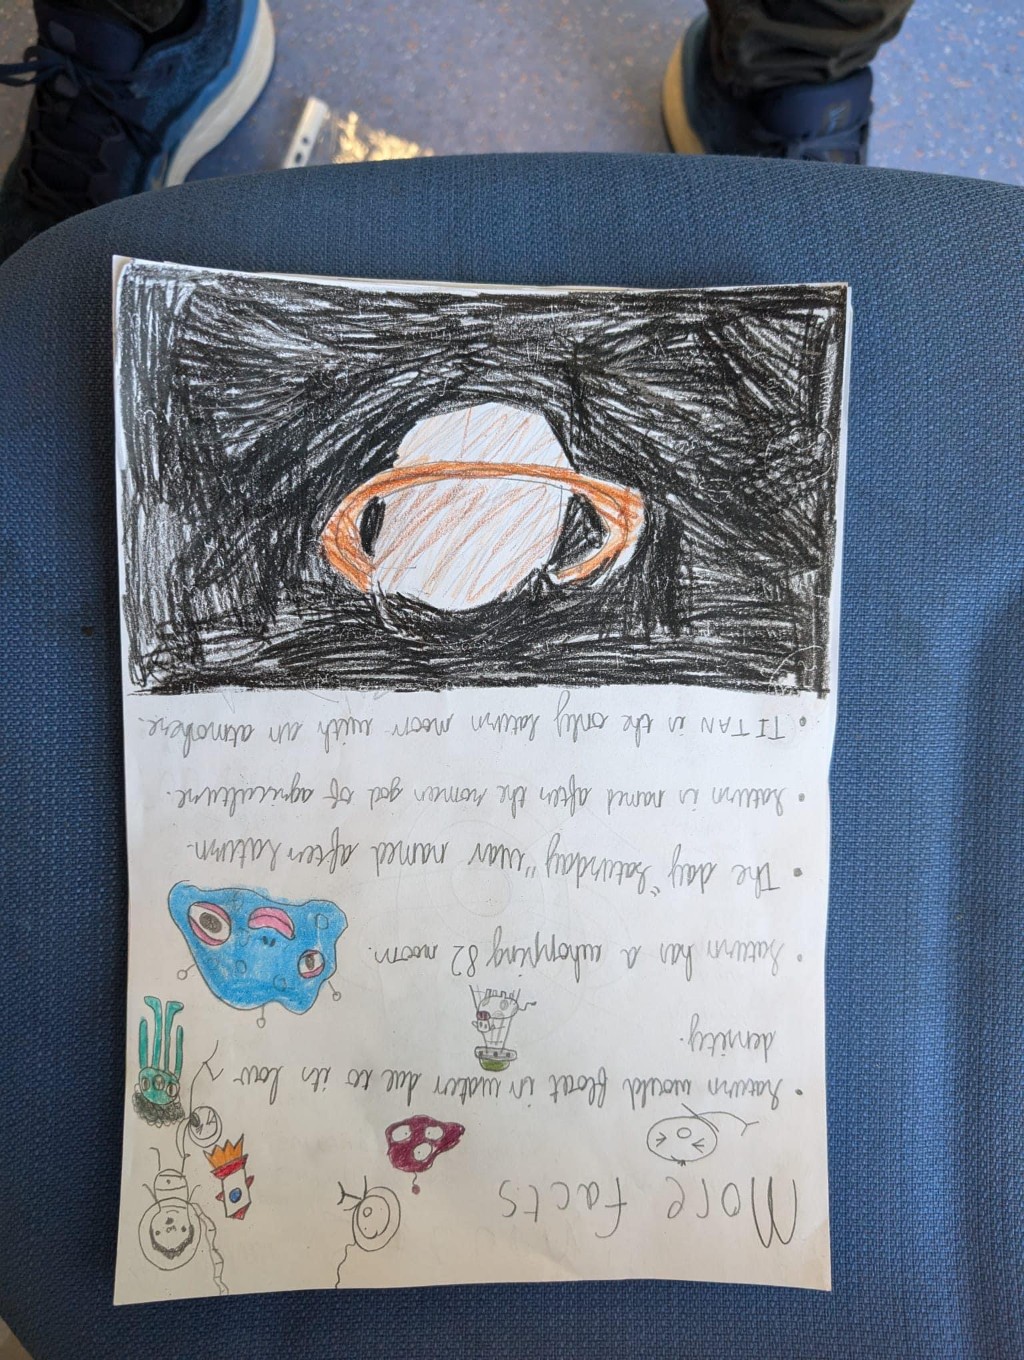 More facts
• Saturn would float in water due to its low
density.
• Saturn has a whopping 82 moon.
• The day "Saturday" was named after Saturn.
• Saturn is named after the romen god of agriculture.
• TITAN is the only Saturn moon with an atmohere.